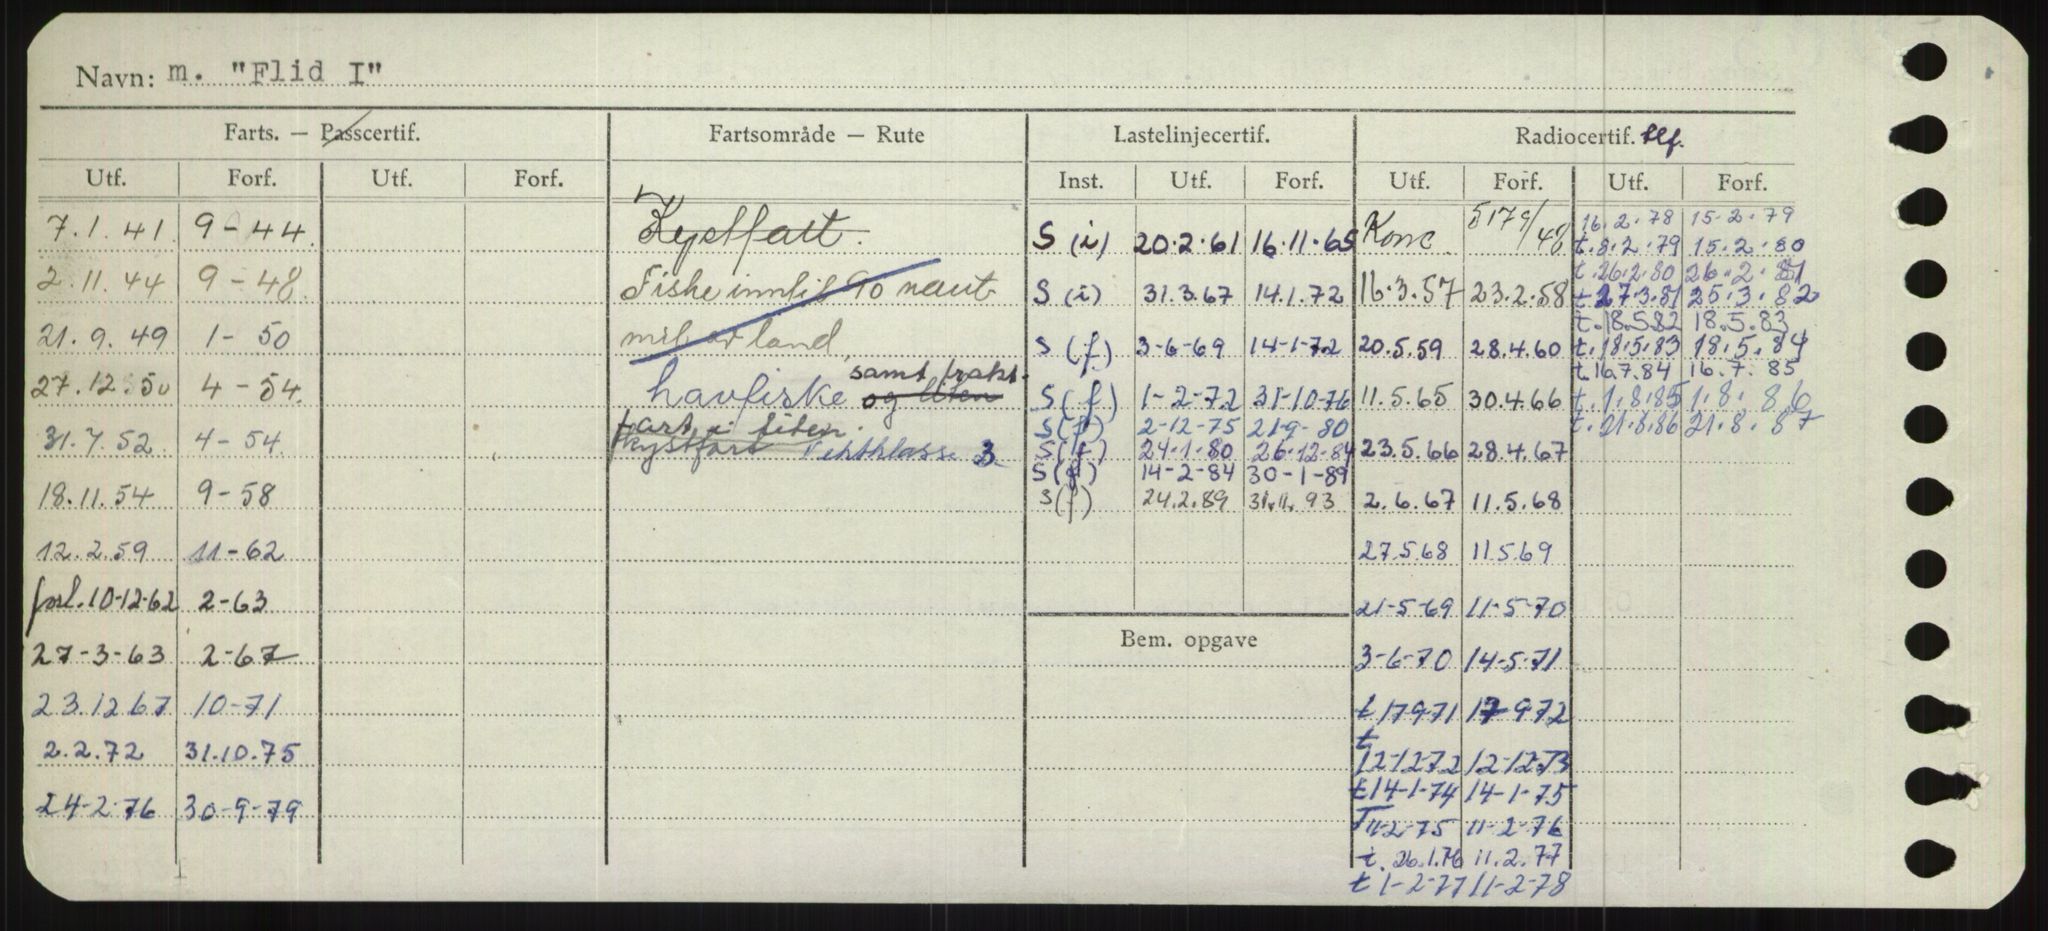 Navn: m. "Flid I"
Farts. — Passcertif. Fartsområde — Rute Lastelinjecertif. Radiocertif. tlf.
Utf. Forf. Utf. Forf. Inst. Utf. Forf. Utf. Forf. Utf. Forf.
7.1.41. 9-44.
2.11.44 9-48.
21.9.49 1-50
27.12.50 4-54.
31.7.52. 4-54.
18.11.54 9-58
12.2.59 11-62
forl. 10-12-62 2-63
27-3-63 2-67
23.12.67 10-71
2.2.72 31.10.75
24-2-76 30-9-79
Kystfart.
Fiske inntil 90 naut
mil av land,
havfiske og liten samt frakt-
fart i liten.
kystfart Vektklasse 3
S (i) 20.2.61 16.11.65
S (i) 31.3.67 14.1.72
S (f) 3-6-69 14-1-72
S (f) 1-2-72 31-10-76
S (f) 2-12-75 21-9-80
S (f) 24-1-80 26-12-84
S (f) 14-2-84 30-1-89
S (f) 24.2.89 31.11.93
Bem. opgave
Konc 5179/48
16.3.57 23.2.58
20.5.59 28.4.60
11.5.65 30.4.66
23.5.66 28.4.67
2.6.67 11.5.68
27.5.68 11.5.69
21-5-69 11-5-70
3-6-70 14-5-71
t 17971 17 972
t
12-12-72 12-12-73
t 14-1-74 14-1-75
T 11-2-75 11-2-76
t. 26.1.76 11.2.77
t 1-2-77 11-2-78
16.2.78 15.2.79
t. 8.2.79 15.2.80
t. 26.2.80 26.2.81
t. 27.3.81 25.3.82
t. 18.5.82 18.5.83
t. 18.5.83 18.5.84
t. 16.7.84 16.7.85
t. 1.8.85 1.8.86
t. 21.8.86 21.8.87